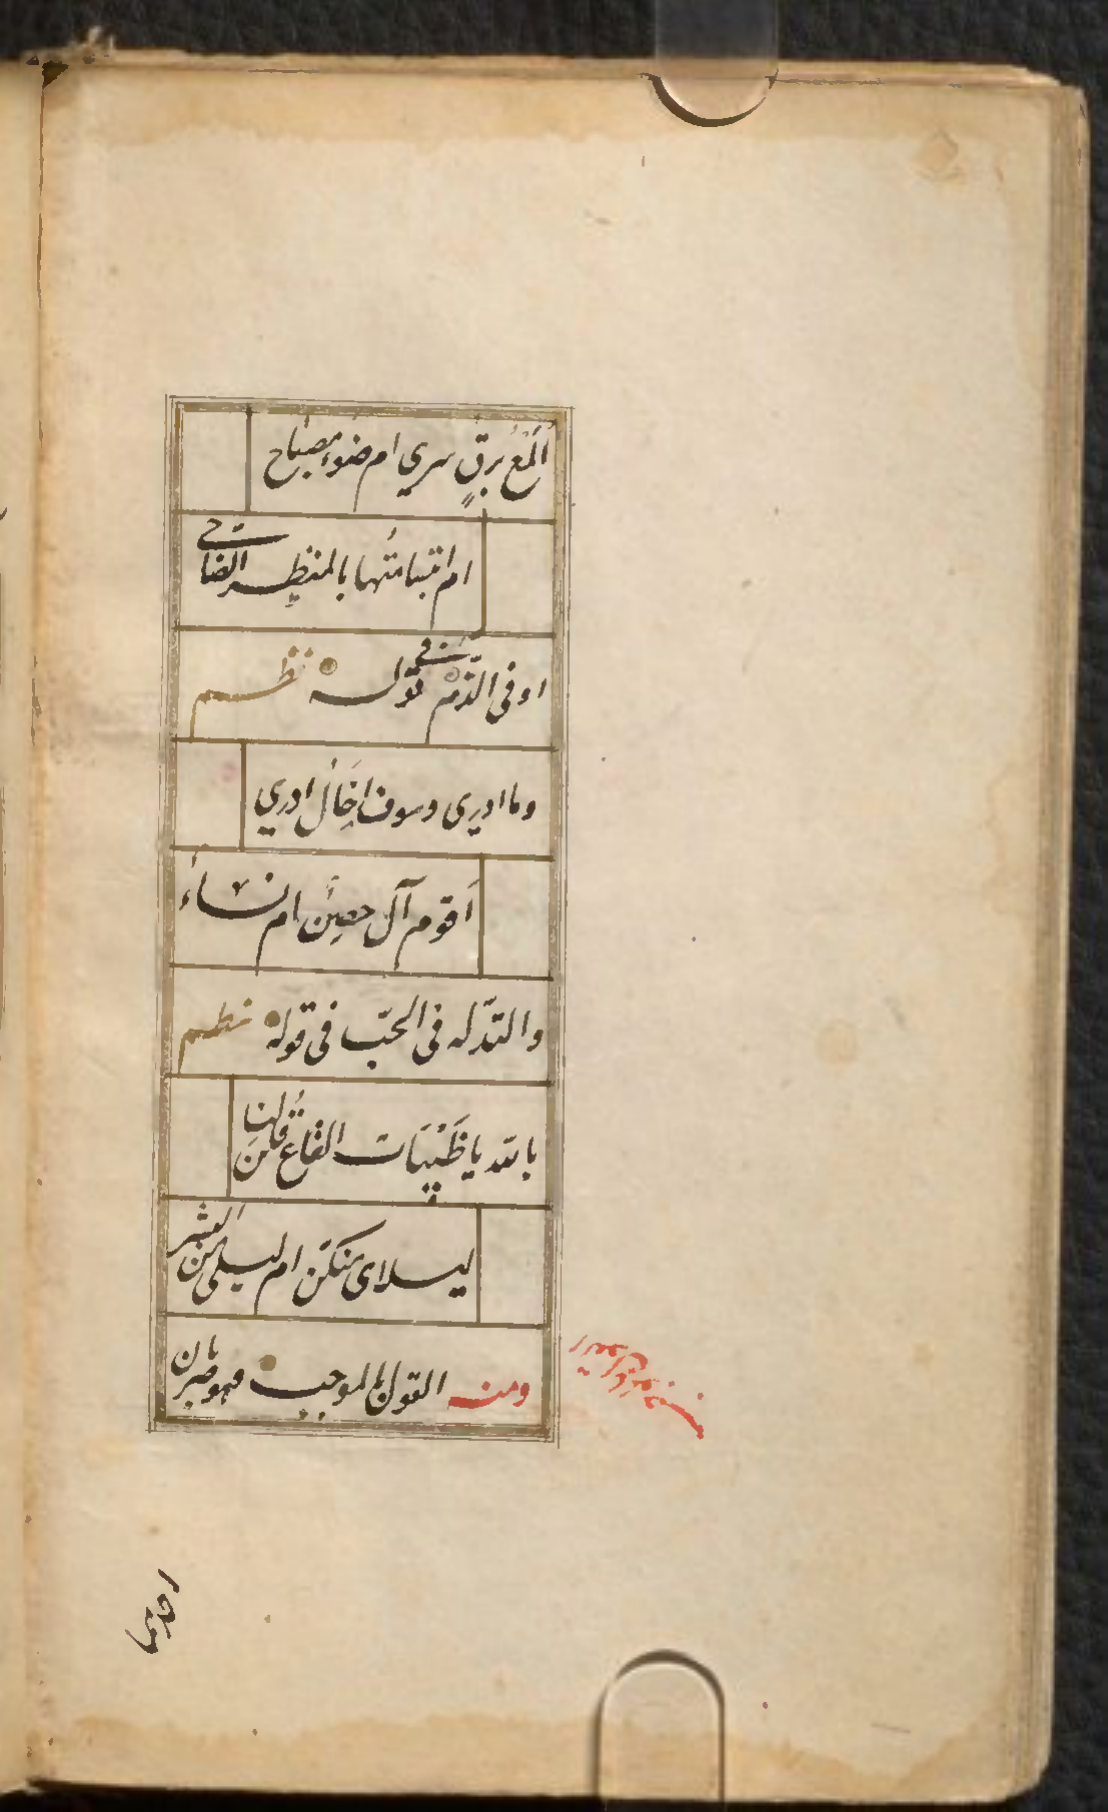 اَلَمْعُ برقٍ سري ام ضوءُ مصباح
ام ابتسامتُها بالمنظرِ الضاحي
او فی الذّم فی قوله نظم
وما ادری وسوف اِخَالُ ادري
اَقوم آل حصنٍ ام نساءُ
والتدّله فی الحبّ فی قوله نظم
بالله يا ظَبْيَات القاع قُلنَ لنا
ليلای منكن ام ليلی من البشر
ومنه القول بالموجب فهو ضربان
احدهما